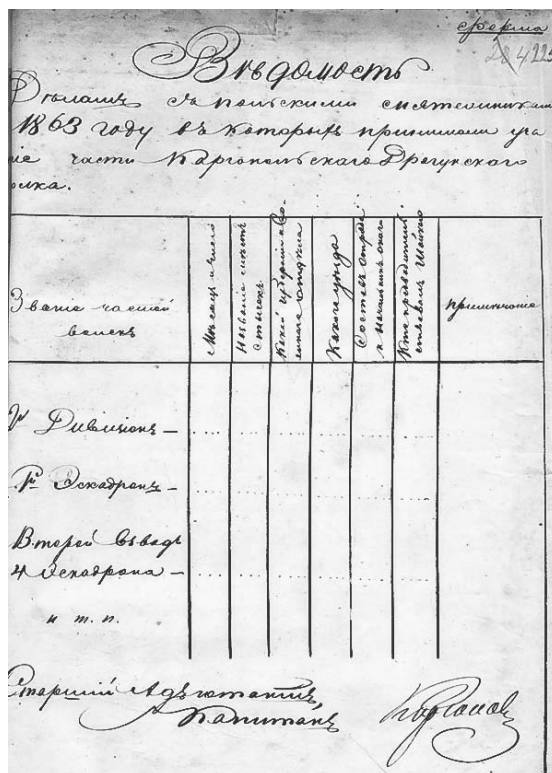 Форма
284 225
Вѣдомость
О стычкахъ съ польскими мятежниками
1863 году въ которыхъ принимали уча
ие части Каргопольскаго Драгунскаго
олка.
Званіе частей
войскъ
Мѣсяцъ и число
Названіе мѣстъ
стычекъ
Какой губерніи
отдѣла
Какого уѣзда
Составъ отряда
и начальникъ онаго
Кто предводитель
шайки
примѣчаніе
й Дивизіонъ —
й Эскадронъ —
Второй взводъ
4 Эскадрона —
и т. п.
Старшій Адъютантъ,
Капитанъ